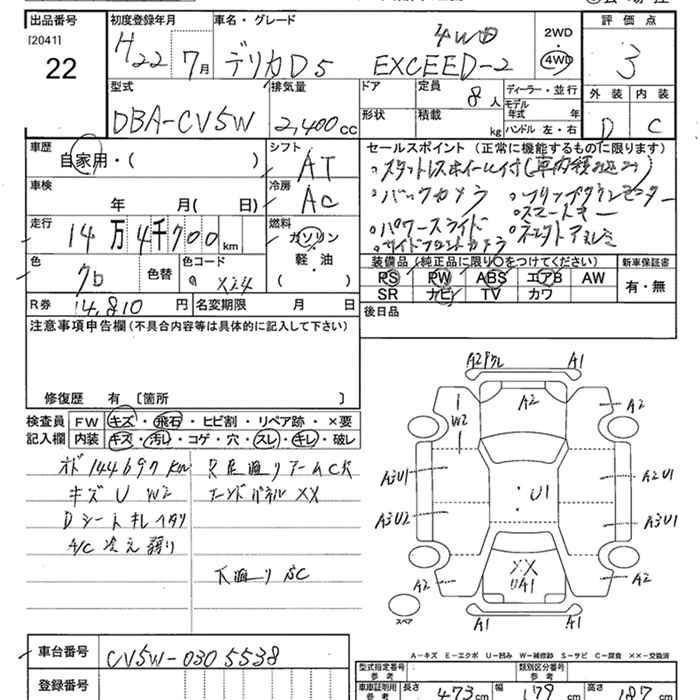 出品番号 初度登録年月 車名・グレード 2WD 評価点
[2041] H22 7月 デリカD5 4WD EXCEED-2 4WD 3
22
型式 排気量 ドア 定員 ディーラー・並行 外装 内装
DBA-CV5W 2,400cc 8人 モデル年式 年 D C
形状 積載 kg ハンドル 左・右
車歴 シフト セールスポイント (正常に機能するものに限ります)
自家用・( ) AT 。スタットレスホイール付(車内積込み)
車検 冷房 。バックカメラ 。フリップダウンモニター
年 月( 日) AC 。スマートキー
走行 燃料 。パワースライド
14万4千700km ガソリン 。サイドフロントカメラ
軽・油
( )
色 色替 色コード 装備品(純正品に限り○をつけてください) 新車保証書
クロ X24 PS PW ABS エアB AW 有・無
SR ナビ TV カワ
R券 14,810円 名変期限 月 日 後日品
注意事項申告欄(不具合内容等は具体的に記入して下さい)
修復歴 有 〔箇所 〕
検査員 FW キズ・飛石・ヒビ割・リペア跡・×要
記入欄 内装 キズ・汚レ・コゲ・穴・スレ・キレ・破レ
オド 144697km
キズ U W2 エンドパネルXX
Dシート 札 ヘタリ
A/C 冷え弱り
下廻り SC
A2 A1
A2 A2
W2
A3U1 A2U1
U1
A3U2 A3U1
XX
UA1
A2 A2
A1 A1
スペア
A-キズ E-エクボ U-凹み W-補修跡 S-サビ C-腐食 XX-交換済
車台番号 CV5W-0305538
登録番号
型式指定番号 参考 類別区分番号 参考
車庫証明用 参考 長さ 473cm 幅 179cm 高さ 187cm